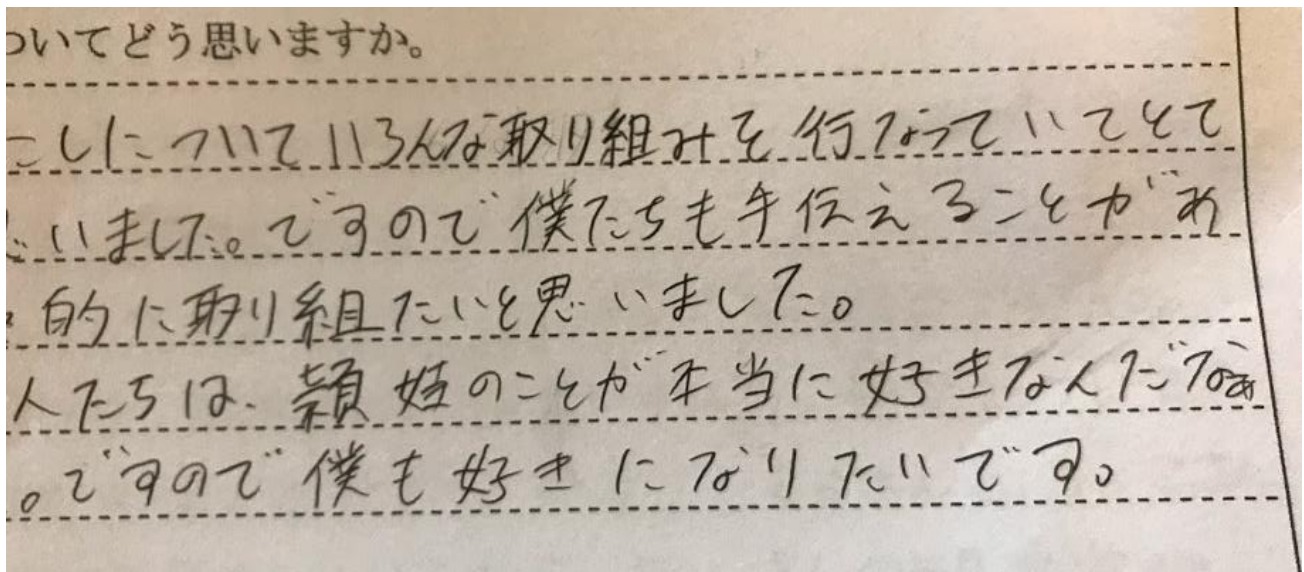 ついてどう思いますか。
こしについていろんな取り組みを行なっていてとて
いました。ですので僕たちも手伝えることがあ
的に取り組たいと思いました。
人たちは、頴娃のことが本当に好きなんだなぁ
。ですので僕も好きになりたいです。